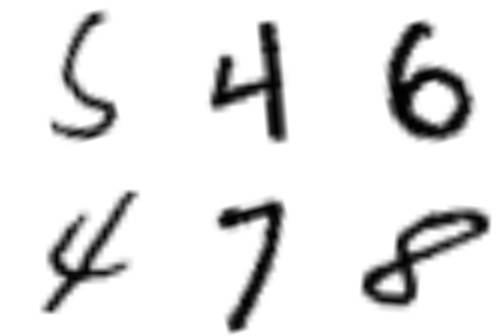 5 4 6
4 7 8